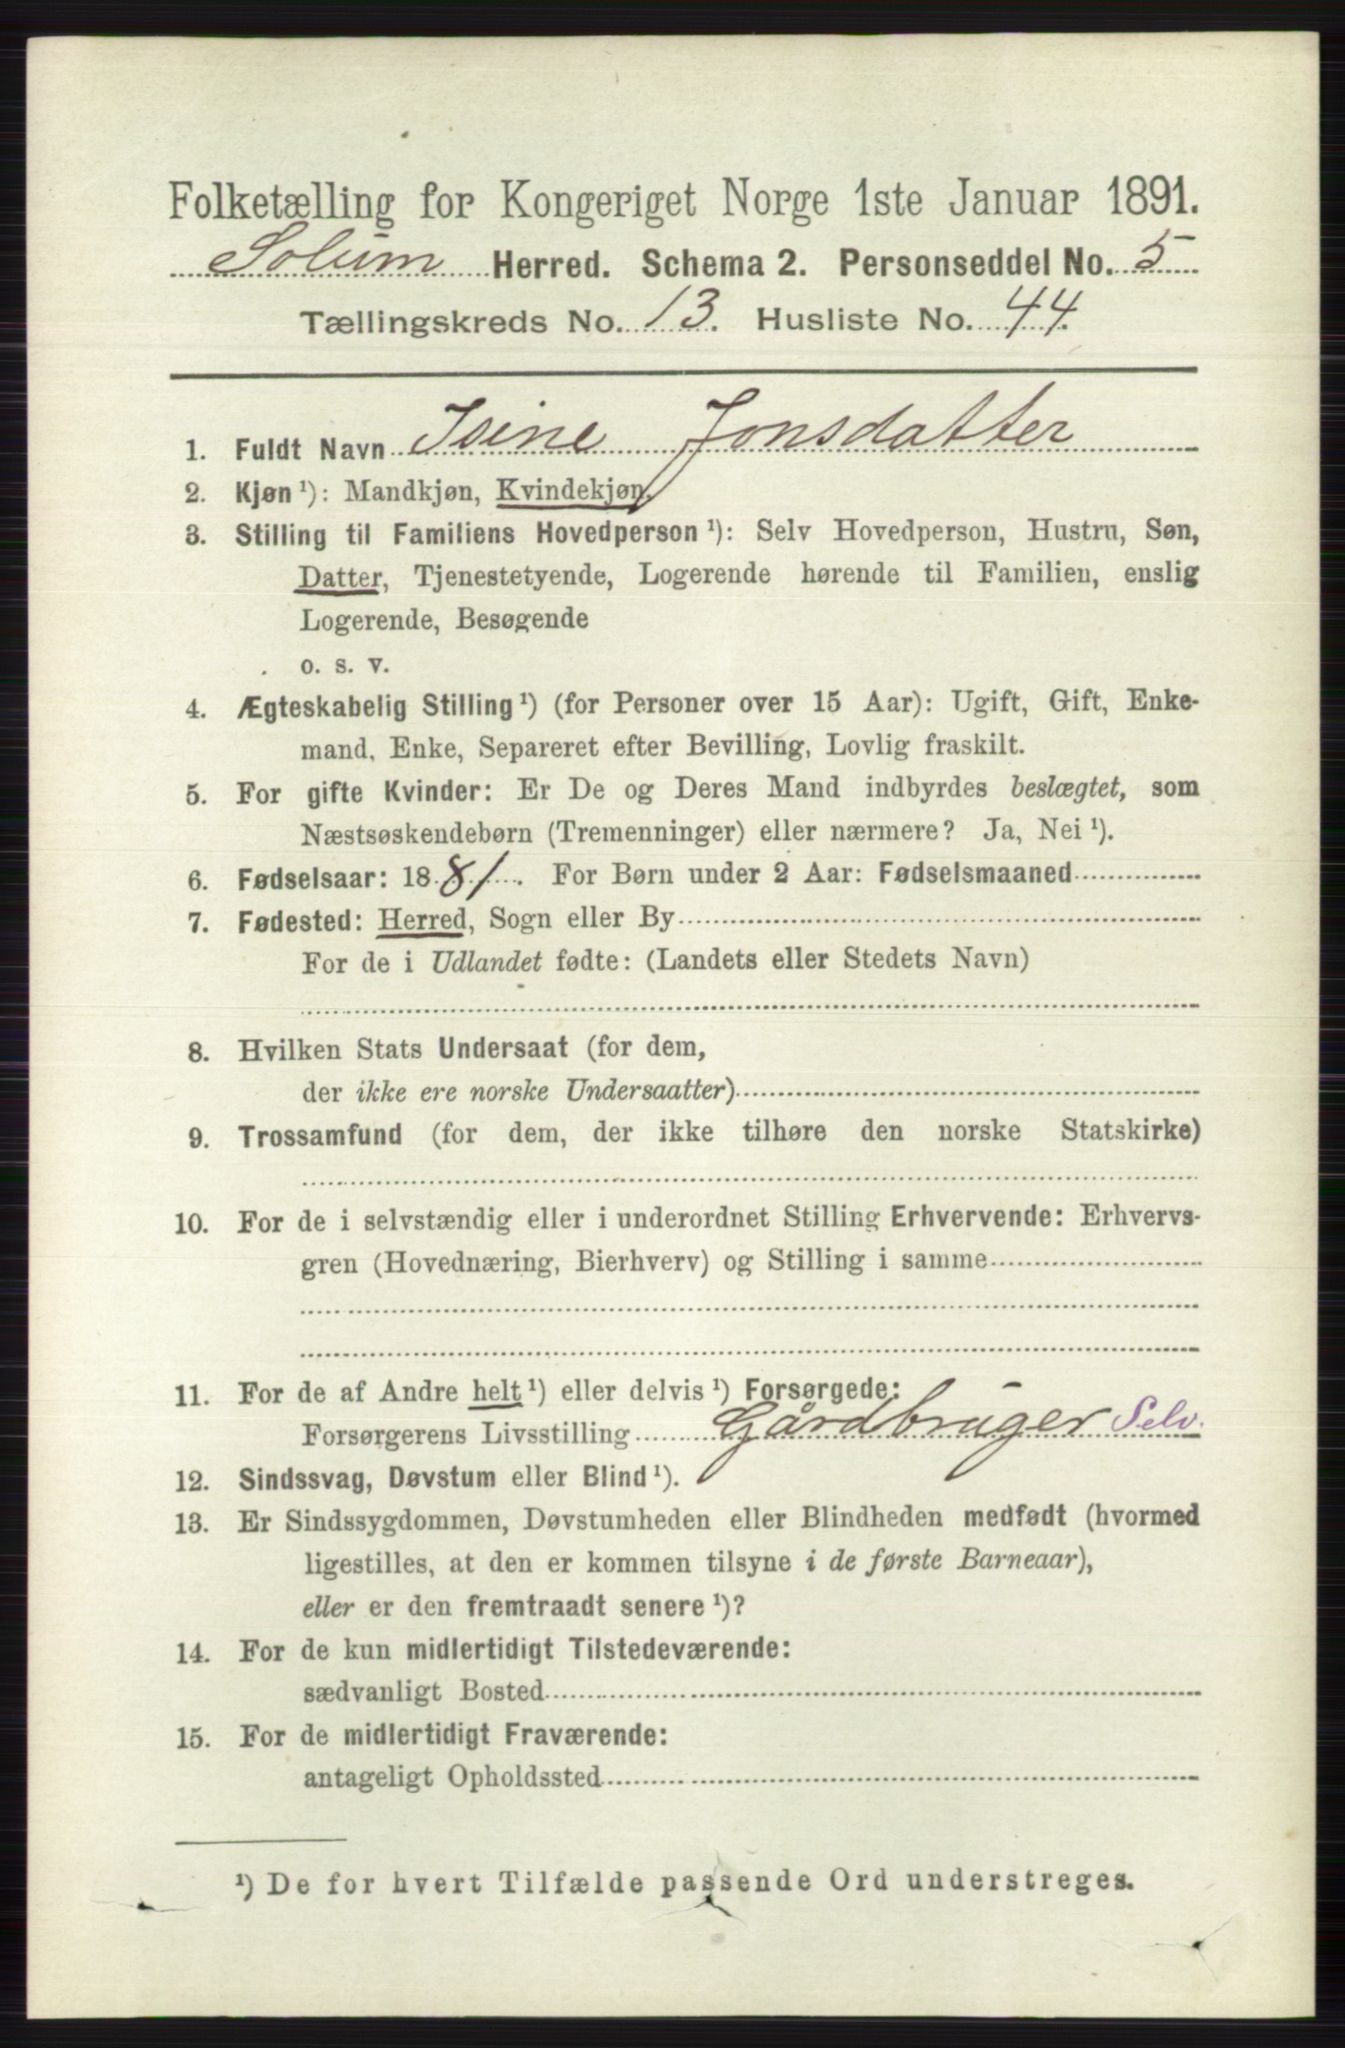 Folketælling for Kongeriget Norge 1ste Januar 1891.
Solum Herred. Schema 2. Personseddel No. 5
Tællingskreds No. 13. Husliste No. 44.
1. Fuldt Navn Isine Jonsdatter
2. Kjøn ¹): Mandkjøn, Kvindekjøn.
3. Stilling til Familiens Hovedperson ¹): Selv Hovedperson, Hustru, Søn,
Datter, Tjenestetyende, Logerende hørende til Familien, enslig
Logerende, Besøgende
o. s. v.
4. Ægteskabelig Stilling ¹) (for Personer over 15 Aar): Ugift, Gift, Enke-
mand, Enke, Separeret efter Bevilling, Lovlig fraskilt.
5. For gifte Kvinder: Er De og Deres Mand indbyrdes beslægtet, som
Næstsøskendebørn (Tremenninger) eller nærmere? Ja, Nei ¹).
6. Fødselsaar: 1881. For Børn under 2 Aar: Fødselsmaaned
7. Fødested: Herred, Sogn eller By
For de i Udlandet fødte: (Landets eller Stedets Navn)
8. Hvilken Stats Undersaat (for dem,
der ikke ere norske Undersaatter)
9. Trossamfund (for dem, der ikke tilhøre den norske Statskirke)
10. For de i selvstændig eller i underordnet Stilling Erhvervende: Erhvervs-
gren (Hovednæring, Bierhverv) og Stilling i samme
11. For de af Andre helt ¹) eller delvis ¹) Forsørgede:
Forsørgerens Livsstilling Gårdbruger Selv.
12. Sindssvag, Døvstum eller Blind ¹).
13. Er Sindssygdommen, Døvstumheden eller Blindheden medfødt (hvormed
ligestilles, at den er kommen tilsyne i de første Barneaar),
eller er den fremtraadt senere ¹)?
14. For de kun midlertidigt Tilstedeværende:
sædvanligt Bosted
15. For de midlertidigt Fraværende:
antageligt Opholdssted
¹) De for hvert Tilfælde passende Ord understreges.